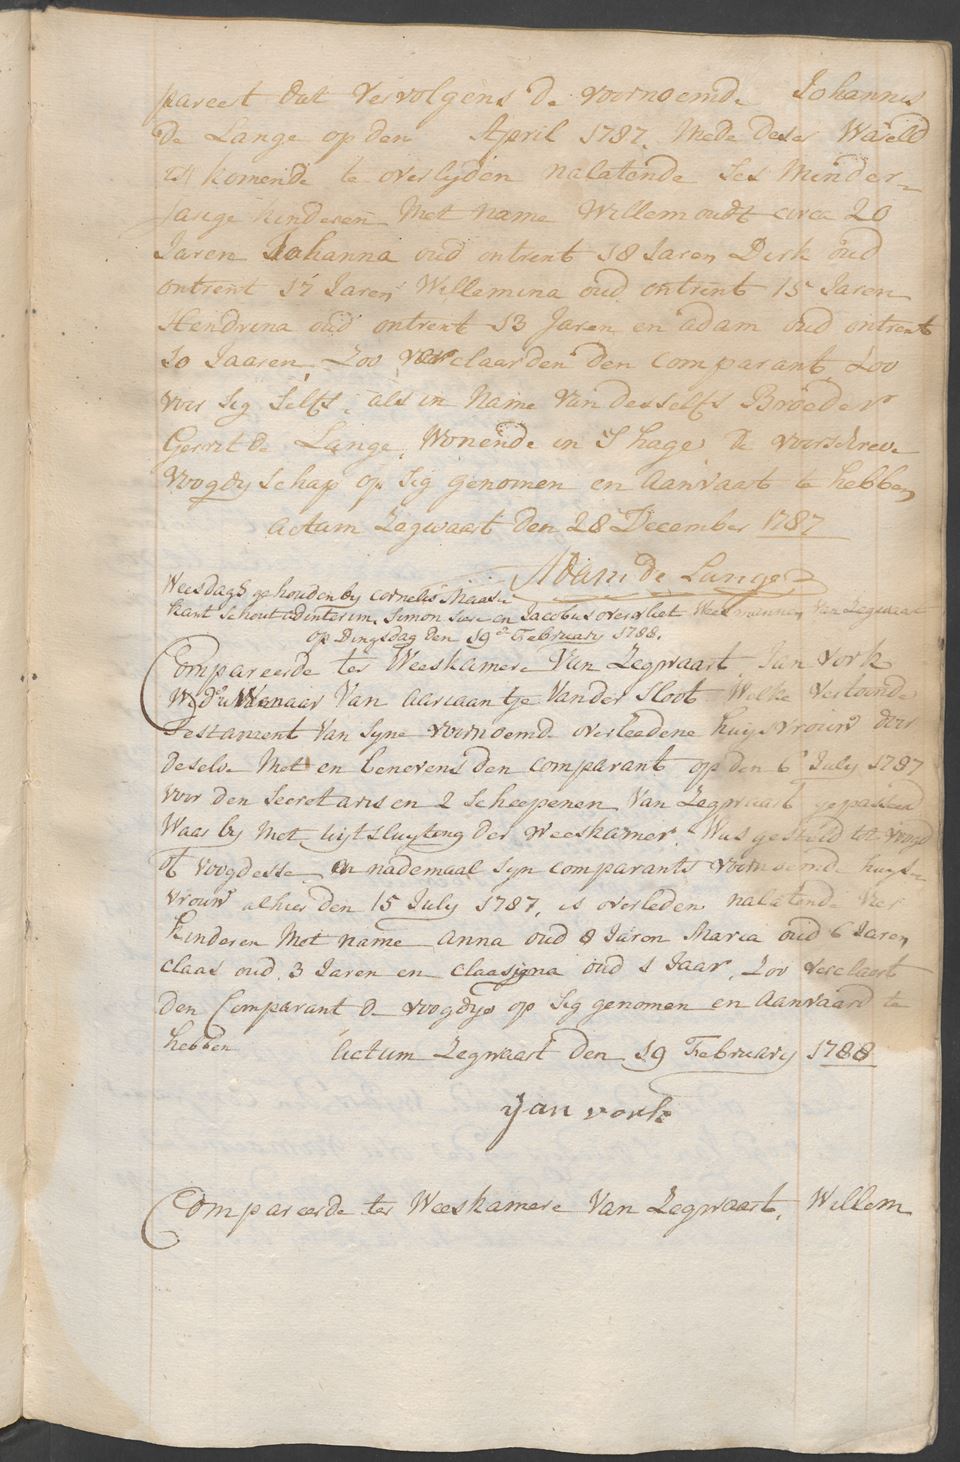 pareert dat vervolgens de voornoemde Johannes
de Lange op den April 1787. Mede deser Wareld
is komende te overlyden nalatende ses Minder-
jarige kinderen Met name Willem oudt circa 20
Jaren Johanna oud ontrent 18 Jaren Dirk oud
ontrent 17 Jaren Willemina oud ontrent 15 Jaren
Hendrina oud ontrent 13 Jaren en adam oud ontrent
10 Jaaren, Zoo verclaarden den comparant Zoo
voor sig selfs, als in Name Van desselfs Broeder
Gerrit de Lange, Wonende in S hage, de voorschreve
voogdyschap op sig genomen en Aanvaart te hebben
Actum Zegwaart den 28 December 1787
Adam de Lange
Weesdags gehouden by Cornelis Maas
kant schout adinterim, Simon en Jacobus overvliet Weesmannen Van Zegwaart
op Dingsdag den 19e February 1788.
Compareerde ter Weeskamere Van Zegwaart Jan Vork
Weduwenaar Van Aariaantje Van der Sloot Welke vertoonde
Testament Van syne voornoemde overleedene huysvrouw door
deselve Met en benevens den comparant op den 6e July 1787
voor den Secretaris en 2 Scheepenen Van Zegwaart gepasseerd
Waar by Met uytsluyting der weeskamer. Was gesteld tot voogd
of voogdesse, en nademaal syn comparants voornoemde huys-
vrouw alhier den 15 July 1787, is overleden nalatende vier
kinderen Met name Anna oud 8 Jaren Maria oud 6 Jaren
Claas oud 3 Jaren en Claasigna oud 1 Jaar, Zoo verclaert
den Comparant de voogdye op sig genomen en Aanvaard te
hebben Actum Zegwaart den 19 February 1788
Jan vork
Compareerde ter Weeskamere Van Zegwaart, Willem